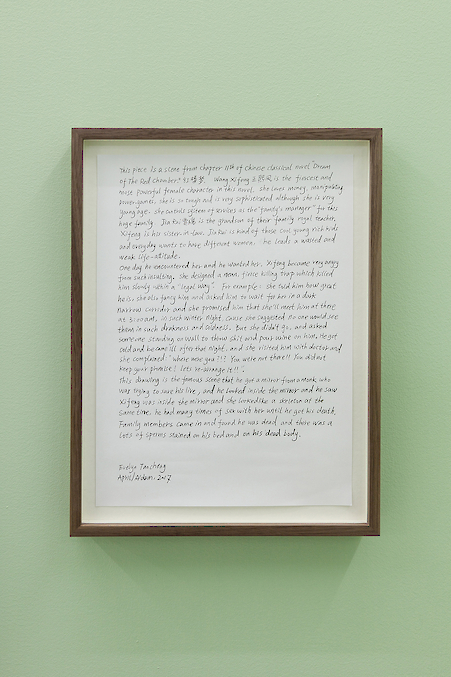 This piece is a scene from chapter 11th of Chinese classical novel "Dream
of The Red Chamber" 红楼梦. Wang Xifeng 王熙凤 is the fiercest and
most powerful female character in this novel. she loves money, manipulating
power games, she is so tough and is very sophisticated although she is very
young age. she controls system of services as the "family's manager" for this
huge family. Jia Rui 贾瑞 is the grandson of their family royal teacher,
Xifeng is his sister-in-law. Jia Rui is kind of those cool young rich kids
and everyday wants to have different women. he leads a wasted and
weak life-attitude.
One day he encountered her and he wanted her. Xifeng became very angry
from such insulting. she designed a man, fierce killing trap which killed
him slowly within a "legal way". For example: she told him how great
he is, she also fancy him and asked him to wait for her in a dark
Narrow corridor and she promised him that she'll meet him at there
at 3:00 am, in such winter night. cause she suggested no one would see
them in such drakness and coldness. But she didn't go, and asked
someone standing on wall to throw shit and pour urine on him. He got
cold and became ill after that night, and she visited him with doctor and
she complained "where were you?!? You were not there!! You did not
keep your promise! lets re-arrange it!!".
This drawing is the famous scene that he got a mirror from a monk who
was trying to save his live, and he looked inside the mirror and he saw
Xifeng was inside the mirror and she looked like a skeleton at the
same time. he had many times of sex with her until he got his death.
Family members came in and found he was dead and there was a
lots of sperms stained on his bed and on his dead body.
Evelyn Taocheng
April/London. 2017